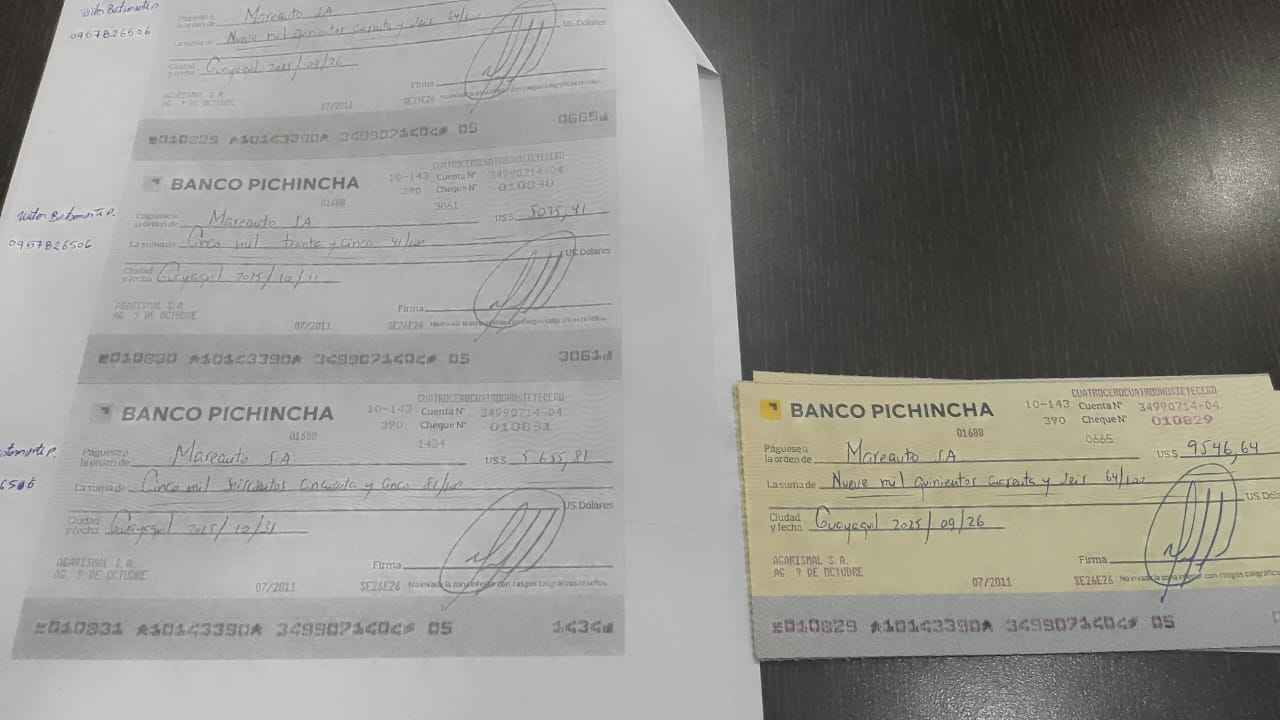 0957826506
Páguese a la orden de Mareauto SA
La suma de Nueve mil quinientos cuarenta y seis 64/100
US Dólares
Ciudad y fecha Guayaquil 2025/09/26
Firma
AGARISMAL S.A.
AG 9 DE OCTUBRE
07/2011 SE26E26
010829 10143390 3499071404 05 0665
CUATROCEROCUATRONUEVETECERO
BANCO PICHINCHA 10-143 Cuenta N° 34990714-04
390 Cheque N° 010830
01688 3061
0957826506
Páguese a la orden de Mareauto SA US$
La suma de Cinco mil treinta y cinco 41/100
US Dólares
Ciudad y fecha Guayaquil 2025/12/31
Firma
AGARISMAL S.A.
AG 9 DE OCTUBRE
07/2011 SE26E26
010830 10143390 3499071404 05 3061
BANCO PICHINCHA 10-143 Cuenta N° 34990714-04
390 Cheque N° 010831
01688 1434
Páguese a la orden de Mareauto SA US$ 5655,81
La suma de Cinco mil seiscientos cincuenta y cinco 81/100
US Dólares
Ciudad y fecha Guayaquil 2025/12/31
Firma
AGARISMAL S.A.
AG 9 DE OCTUBRE
07/2011 SE26E26 No invada la zona inferior con rasgos caligráficos ni sellos
010831 10143390 3499071404 05 1434
BANCO PICHINCHA 10-143 Cuenta N° 34990714-04
390 Cheque N° 010829
01688 0665
Páguese a la orden de Mareauto SA US$ 9546,64
La suma de Nueve mil quinientos cuarenta y seis 64/100
US
Ciudad y fecha Guayaquil 2025/09/26
Firma
AGARISMAL S.A.
AG 9 DE OCTUBRE
07/2011 SE26E26 No invada la zona inferior con rasgos caligráficos
010829 10143390 3499071404 05